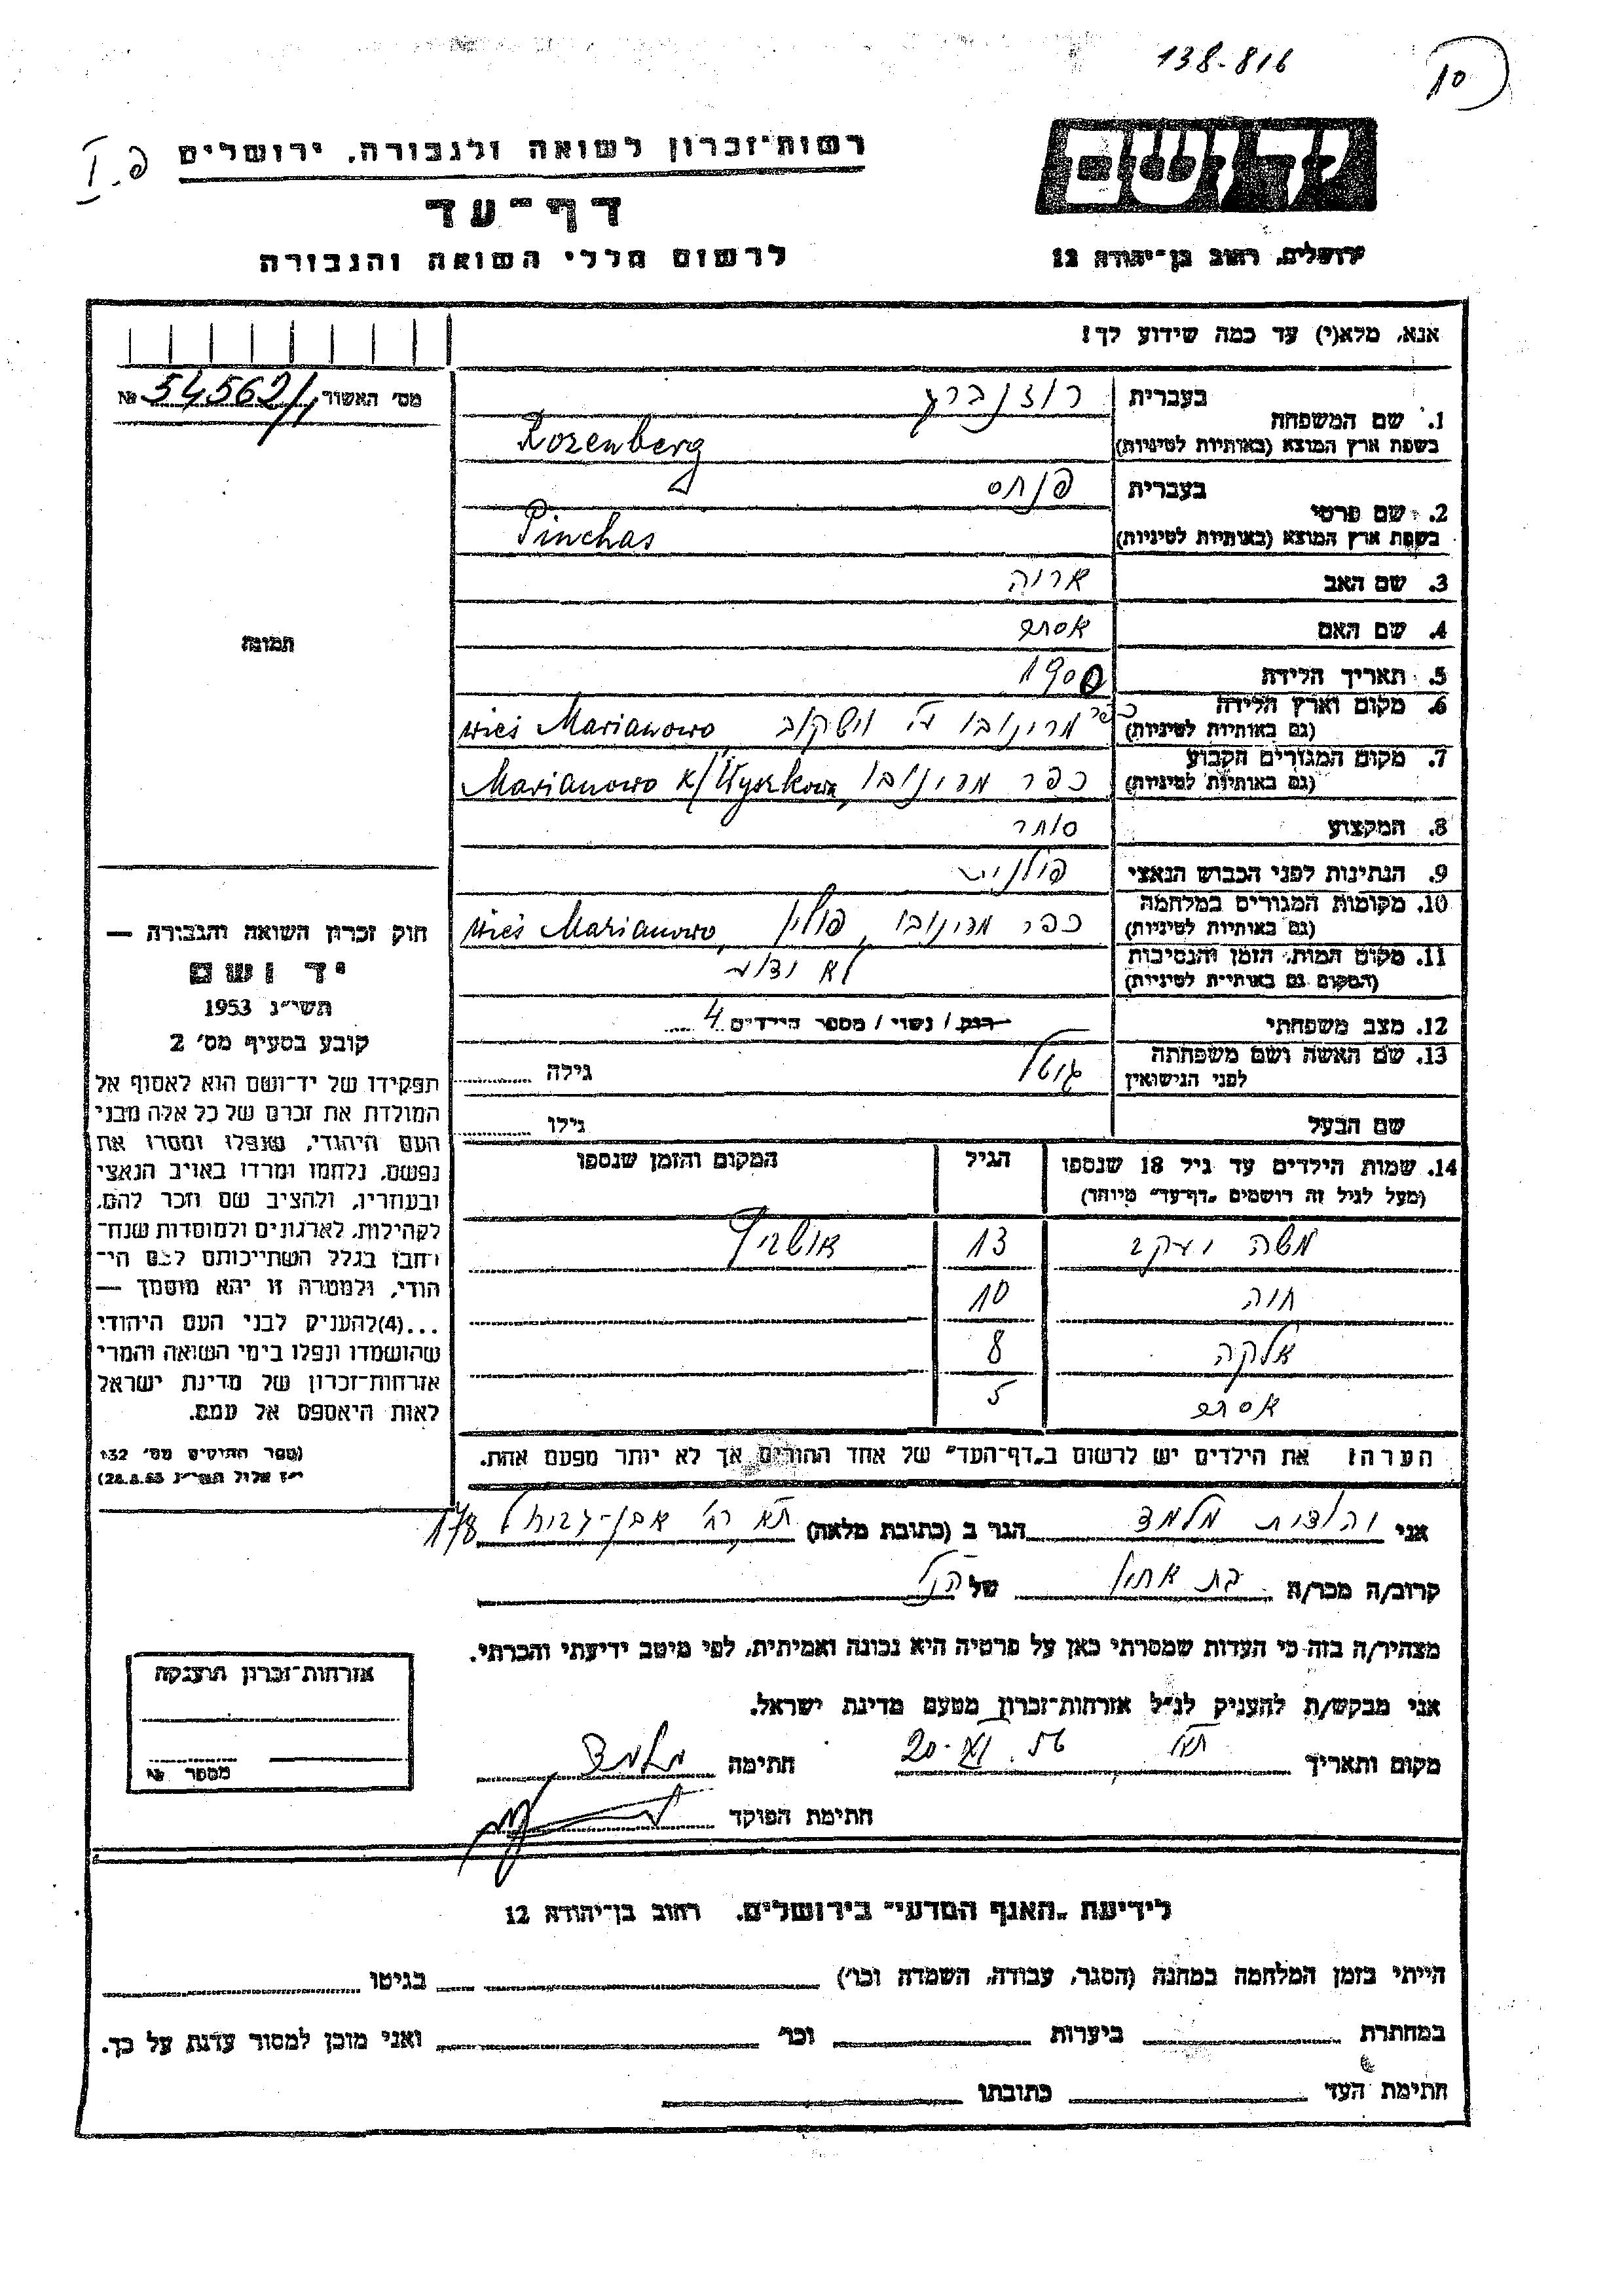 138-816
10
יד ושם
רשות־זכרון לשואה ולגבורה, ירושלים
פ. I
דף־עד
לרשום חללי השואה והגבורה
ירושלים, רחוב בן־יהודה 12
אנא, מלא(י) עד כמה שידוע לך!
מס' האשור 54562/1 №
תמונה
1. שם המשפחה בעברית רוזנברג
בשפת ארץ המוצא (באותיות לטיניות) Rozenberg
2. שם פרטי בעברית פנחס
בשפת ארץ המוצא (באותיות לטיניות) Pinchas
3. שם האב אריה
4. שם האם אסתר
5. תאריך הלידה 1900
6. מקום וארץ הלידה (גם באותיות לטיניות) כפר מרינובו ע"י וישקוב wieś Marianowo
7. מקום המגורים הקבוע (גם באותיות לטיניות) כפר מרינובו, Marianowo k/Wyszkowa
8. המקצוע סוחר
9. הנתינות לפני הכבוש הנאצי פולנית
10. מקומות המגורים במלחמה (גם באותיות לטיניות) כפר מרינובו, פולין wieś Marianowo,
11. מקום המות, הזמן והנסיבות (המקום גם באותיות לטיניות) לא ידוע
12. מצב משפחתי רווק / נשוי / מספר הילדים 4
13. שם האשה ושם משפחתה לפני הנישואין גיטל גילה
שם הבעל גילו
14. שמות הילדים עד גיל 18 שנספו הגיל המקום והזמן שנספו
(מעל לגיל זה רושמים "דף־עד" מיוחד)
משה יעקב 13
חוה 10
אלקה 8
אסתר 5
הערה: את הילדים יש לרשום ב"דף־העד" של אחד ההורים אך לא יותר מפעם אחת.
חוק זכרון השואה והגבורה —
יד ושם
תשי"ג 1953
קובע בסעיף מס' 2
תפקידו של יד־ושם הוא לאסוף אל
המולדת את זכרם של כל אלה מבני
העם היהודי, שנפלו ומסרו את
נפשם, נלחמו ומרדו באויב הנאצי
ובעוזריו, ולהציב שם וזכר להם,
לקהילות, לארגונים ולמוסדות שנח־
רבו בגלל השתייכותם לעם הי־
הודי, ולמטרה זו יהא מוסמך —
...(4)להעניק לבני העם היהודי
שהושמדו ונפלו בימי השואה והמרי
אזרחות־זכרון של מדינת ישראל
לאות היאספם אל עמם.
(ספר החוקים מס' 132
י"ז אלול תשי"ג 28.8.53)
אני יהודית מלמד הגר ב (כתובת מלאה) ת"א רח' אבן־גבירול 178
קרוב/ה מכר/ה בת אחיו של הנ"ל
מצהיר/ה בזה כי העדות שמסרתי כאן על פרטיה היא נכונה ואמיתית, לפי מיטב ידיעתי והכרתי.
אני מבקש/ת להעניק לנ"ל אזרחות־זכרון מטעם מדינת ישראל.
מקום ותאריך ת"א 20-XI.56 חתימה מלמד
חתימת הפוקד
אזרחות־זכרון הוענקה
מספר №
לידיעת "האגף המדעי" בירושלים, רחוב בן־יהודה 12
הייתי בזמן המלחמה במחנה (הסגר, עבודה, השמדה וכו') בגיטו
במחתרת ביערות וכו' ואני מוכן למסור עדות על כך.
חתימת העד כתובתו